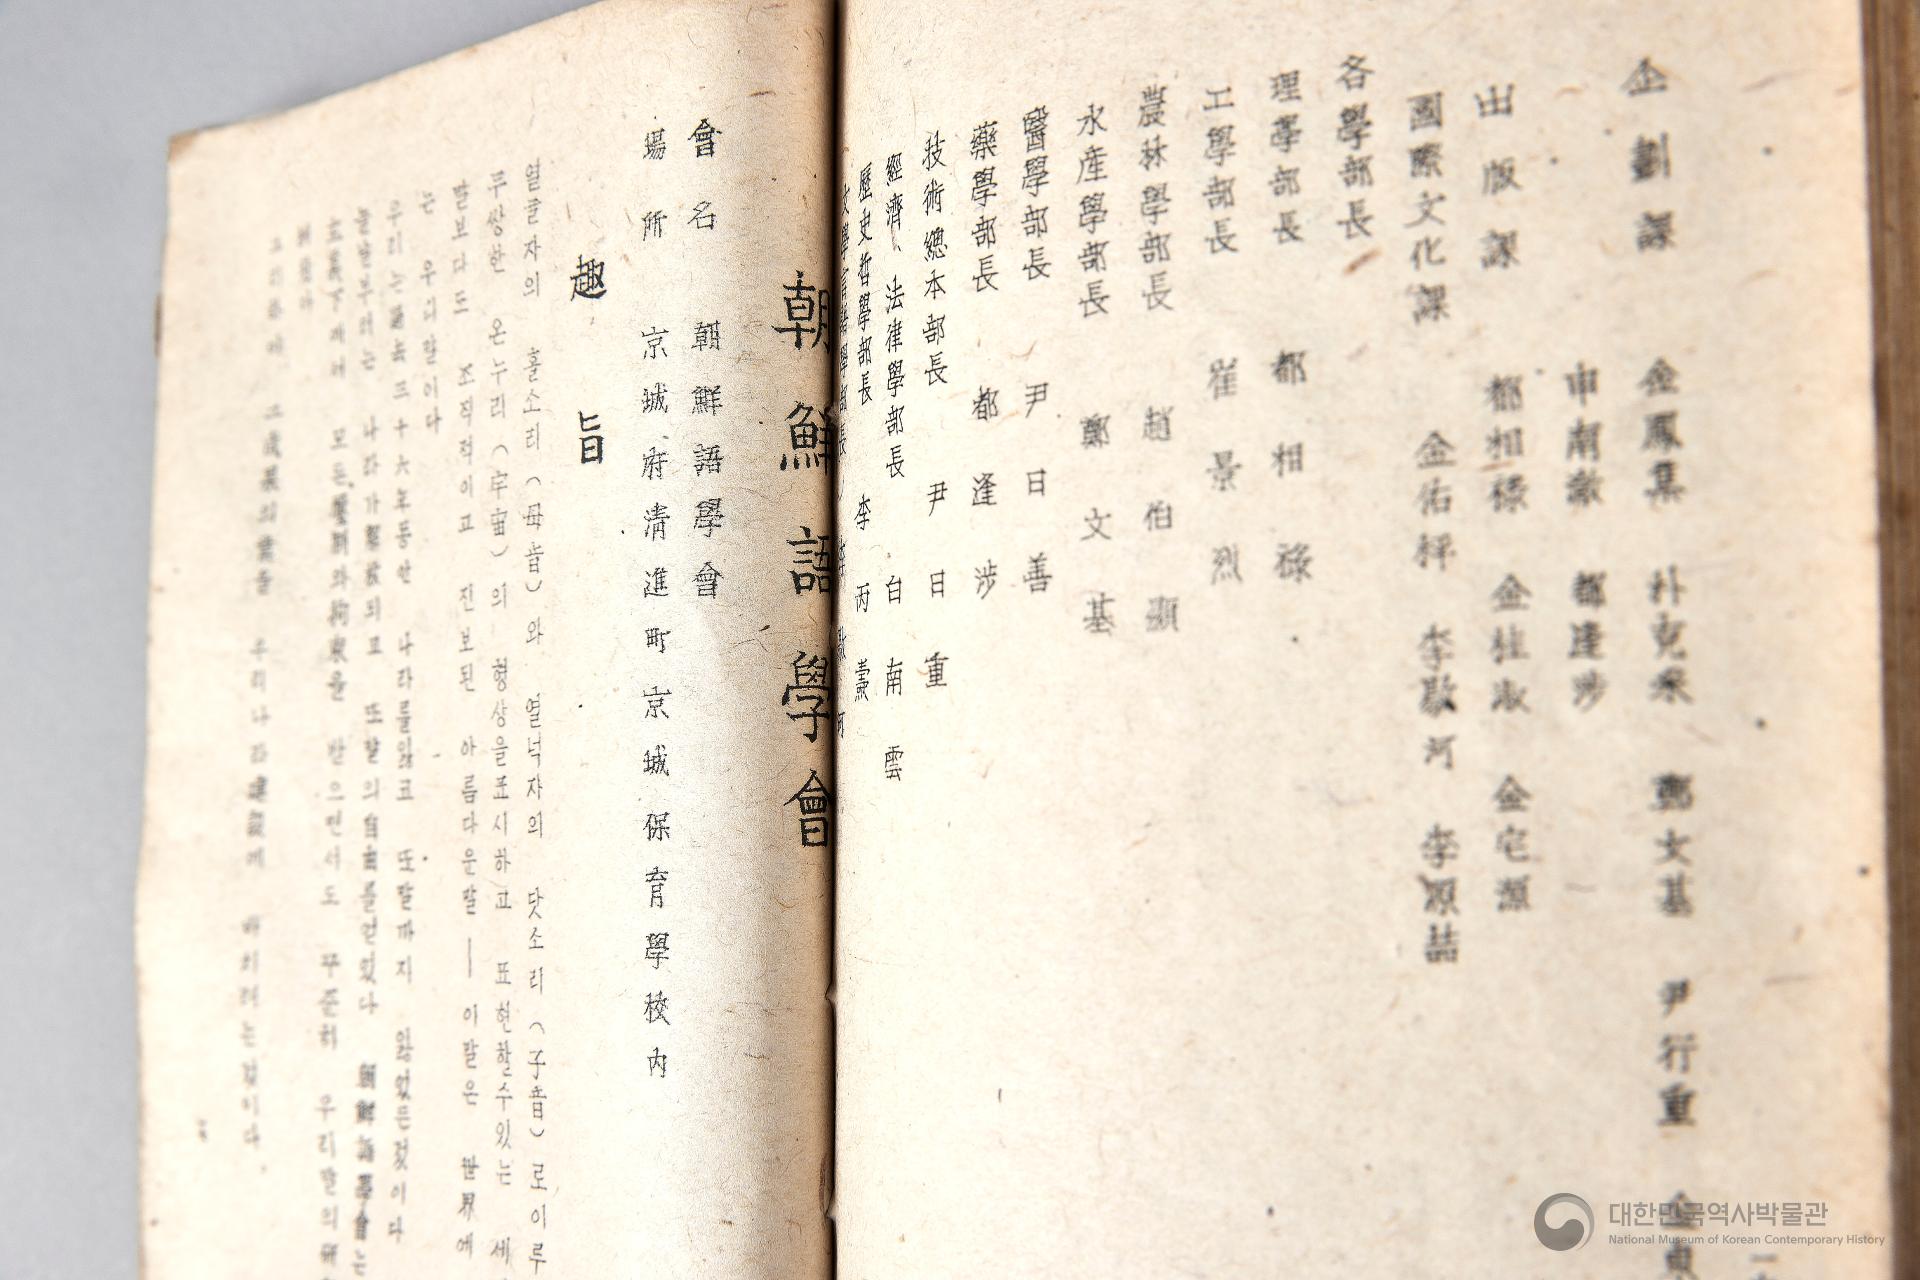 企劃課 金鳳集 朴克采 鄭文基 尹行重
申南澈 都逢涉
出版課 都相祿 金桂淑 金宅源
國際文化課 金佑枰 李敭河 李源喆
各學部長
理學部長 都相祿
工學部長 崔景烈
農林學部長 趙伯顯
水産學部長 鄭文基
醫學部長 尹日善
藥學部長 都逢涉
技術總本部長 尹日重
經濟、法律學部長 白南雲
歷史哲學部長 李丙燾
文學言語學部長
朝鮮語學會
會名 朝鮮語學會
場所 京城府淸進町京城保育學校內
趣旨
열글자의 홀소리(母音)와 열넉자의 닷소리(子音)로이루
무쌍한 온누리(宇宙)의 형상을표시하고 표현할수있는 세
말보다도 조직적이고 진보된 아름다운말――이말은 世界에
는 우리말이다
우리는 三十六年동안 나라를잃고 또말까지 잃었든것이다
오늘부터는 나라가解放되고 또말의自由를얻었다 朝鮮語學會는
下에서 모든 와拘束을 받으면서도 꾸준히 우리말의
그러하매 그成果의 우리나라建設에 바치려는것이다.
대한민국역사박물관
National Museum of Korean Contemporary History